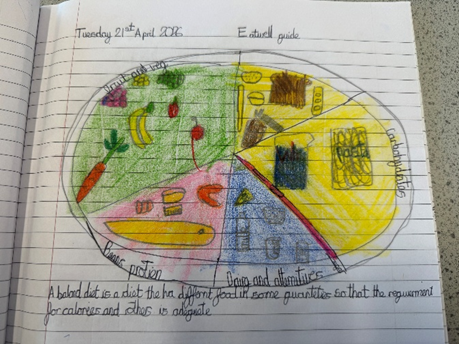 Tuesday 21st April 2026
Eatwell guide
Fruit and veg
Carbohydrates
Pasta
protien
Dairy and alternatives
A baland diet is a diet the ha diffrent food in some quantites so that the reguerment
for calories and is aneguate